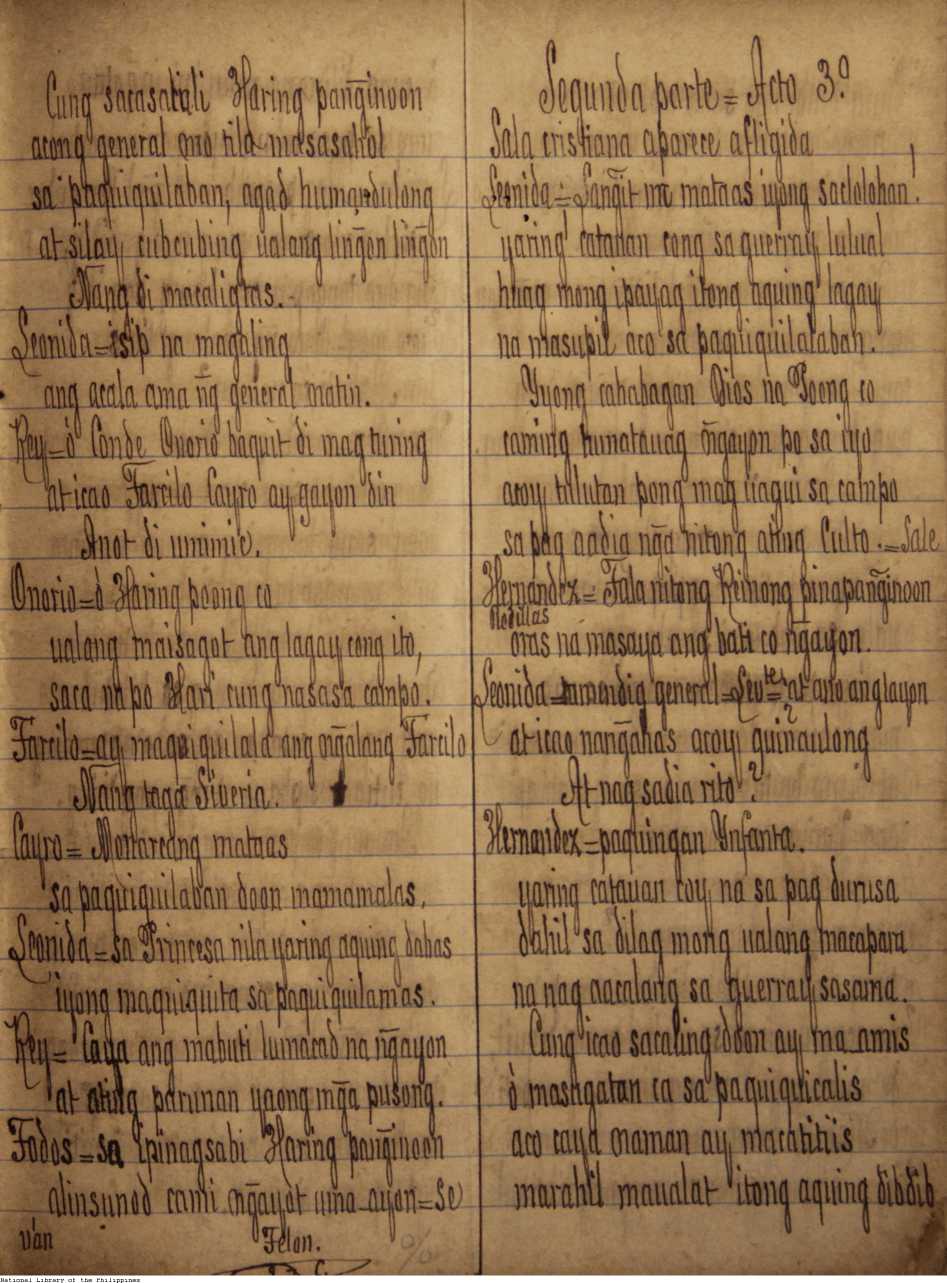 Cung sacasatáli Haring pang̃inoon
acong general mo tila masasahol
sa paquiquilaban, agad humandulong
at silay, cubcubing ualang ling̃on ling̃on
Nang di macaligtas.
Leonida = isip na magaling
ang acala ama ng̃ general matin.
Rey = ò Conde Onorio baquit di mag turing
at icao Farcilo Cayro ay gayon din
Anot di umimic.
Onorio = ò Haring poong co
ualang maisagot ang lagay cong ito,
saca na po Hari cung nasasa campo.
Farcilo = ay maquiquilala ang ng̃alang Farcilo
Nang taga Siveria.
Cayro = Monarcang mataas
sa paquiquilaban doon mamamalas,
Leonida = sa Princesa nila yaring aquing dahas
iyong maquiquita sa paquiquilamas.
Rey = Caya ang mabuti lumacad na ng̃ayon
at ating parunan yaong mg̃a pusong.
Todos = sa ipinagsabi Haring pang̃inoon
alinsunod cami ng̃ayót uma-ayon = Se
ván Telon.
Segunda parte = Acto 3.º
Sala cristiana aparece afligida
Leonida = Lang̃it na mataas iyong saclolohan!
yaring catauan cong sa guerray, lulual
huag mong ipayag itong aquing lagay
na masupil aco sa paquiquilalaban.
Yyong cahabagan Dios na Poong co
caming tunatauag ng̃ayon po sa iyo
acoy, tulutan pong mag uagui sa campo
sa pag aadia ng̃a nitong ating Culto. = Sale
Hernandez = Tala nitong Reinong pinapang̃inoon
Medulas
oras na masaya ang bati co ng̃ayon.
Leonida = general = Levte. at ano ang layon
at icao nang̃ahas acoy, guinaulong?
At nag sadia rito?
Hernandez = paquingan Ynfanta.
yaring catauan coy, na sa pag durusa
dahil sa dilag mong ualang macapara
na nag aacalang sa guerray, sasama.
Cung icao sacaling doon ay, ma-amis
ò masugatan ca sa paquiquicalis
aco caya naman ay, macatitiis
marahil maualat itong aquing dibdib
National Library of the Philippines